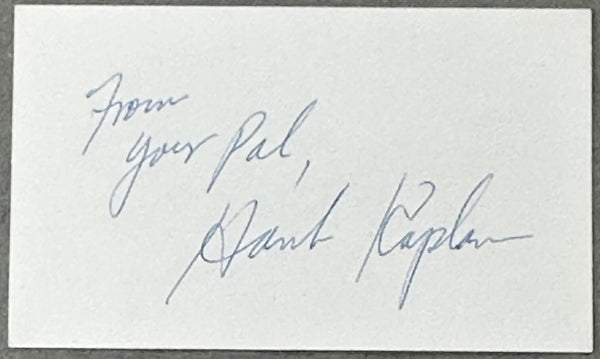 From
your Pal,
Hank Kaplan